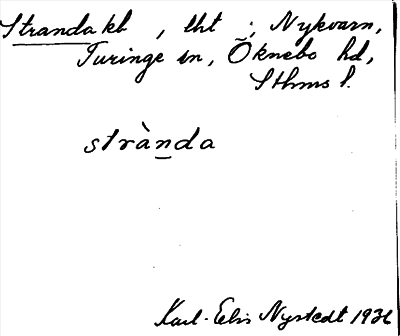 Stranda kb, lht i Nykvarn,
Turinge sn, Öknebo hd,
Sthms l.
stràn̲da
Karl-Elis Nystedt 1936